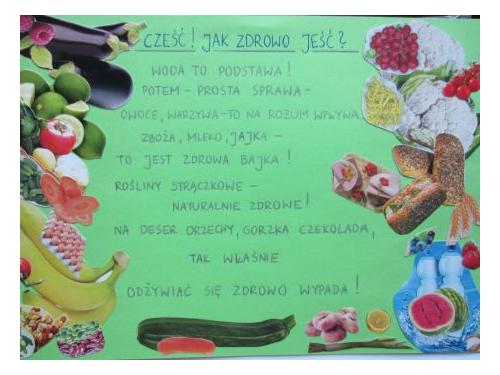 CZEŚĆ! JAK ZDROWO JEŚĆ?
WODA TO PODSTAWA!
POTEM - PROSTA SPRAWA -
OWOCE, WARZYWA - TO NA ROZUM WPŁYWA.
ZBOŻA, MLEKO, JAJKA -
TO JEST ZDROWA BAJKA!
ROŚLINY STRĄCZKOWE -
NATURALNIE ZDROWE!
NA DESER ORZECHY, GORZKA CZEKOLADA,
TAK WŁAŚNIE
ODŻYWIAĆ SIĘ ZDROWO WYPADA!